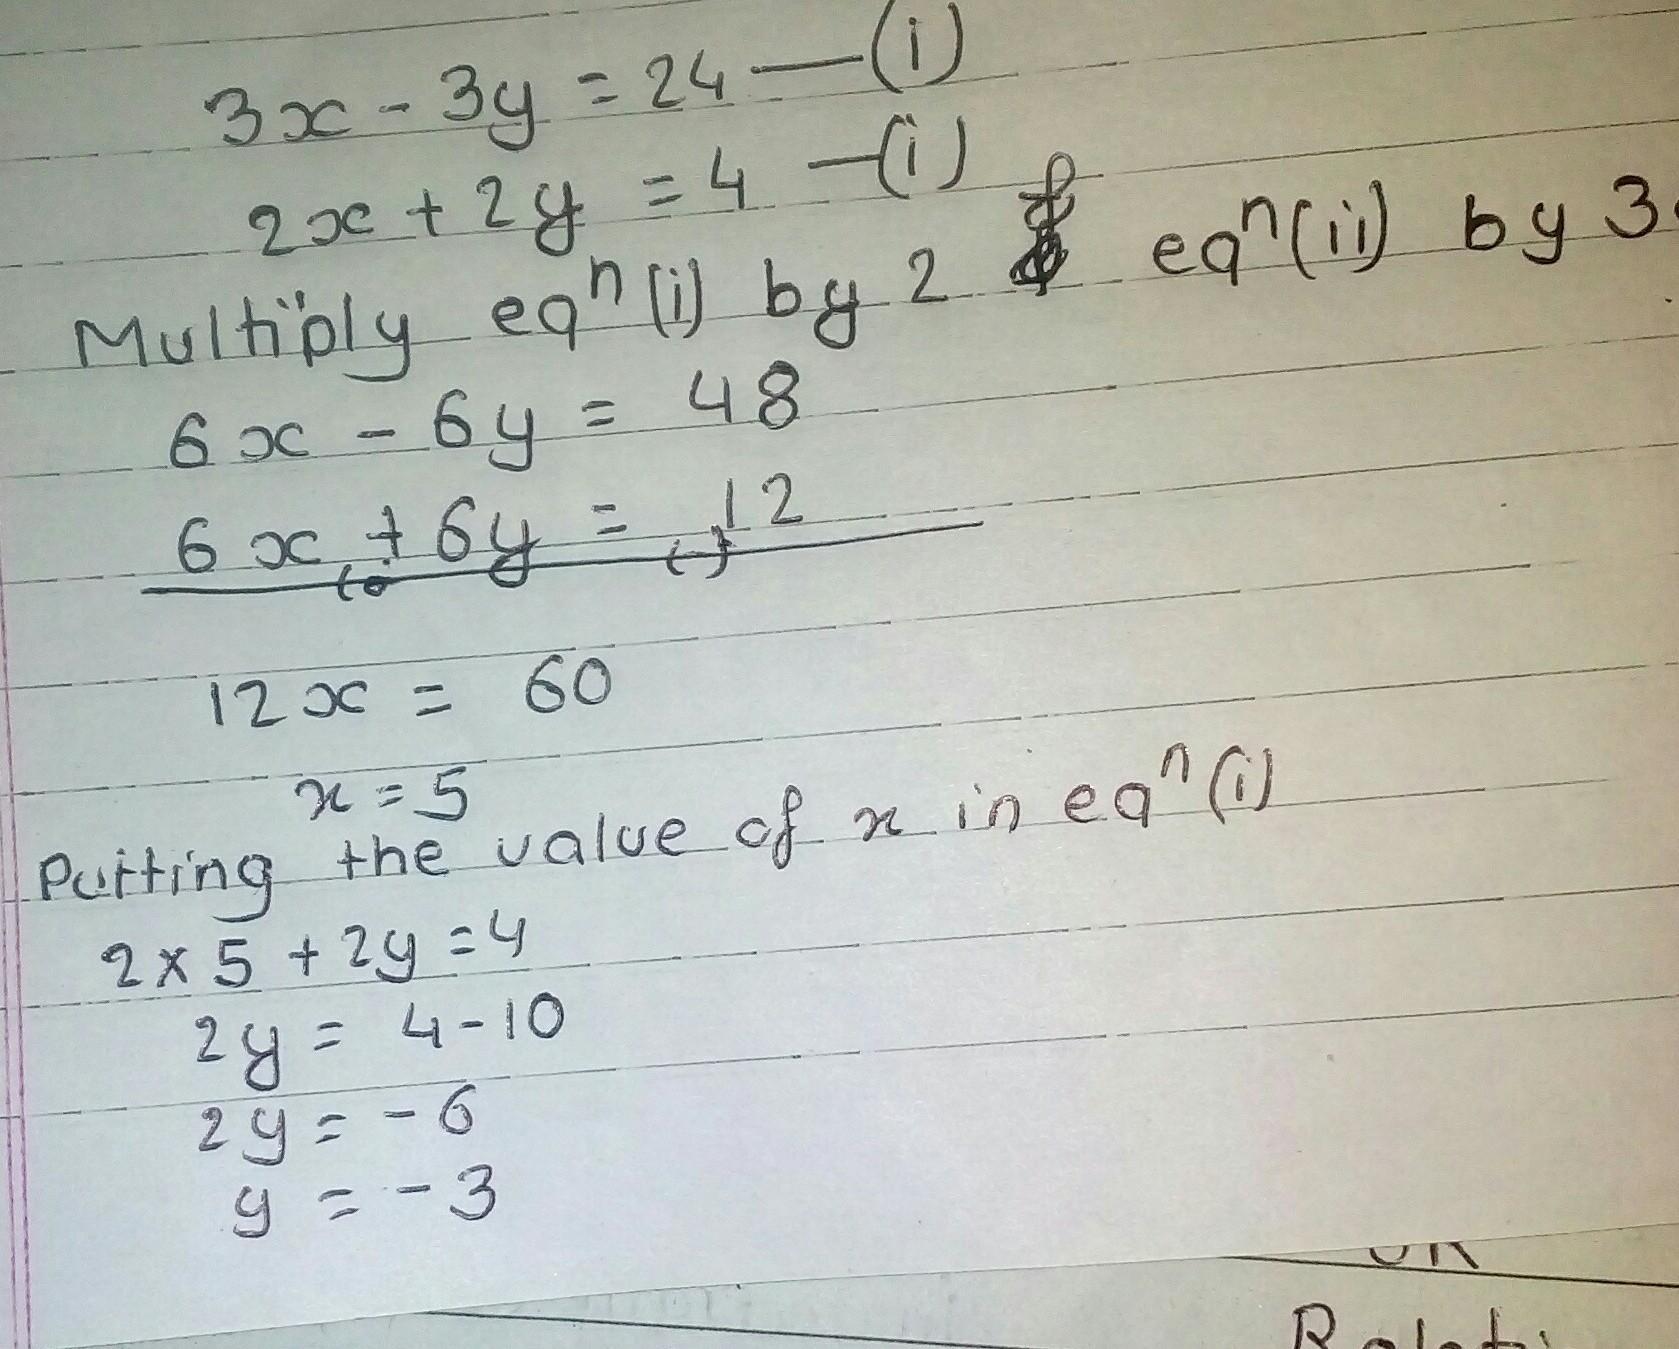 3x - 3y = 24 —(i)
2x + 2y = 4 —(i)
Multiply eqⁿ(i) by 2 & eqⁿ(ii) by 3.
6x - 6y = 48
6x + 6y = 12
12x = 60
x = 5
Putting the value of x in eqⁿ(i)
2 x 5 + 2y = 4
2y = 4 - 10
2y = - 6
y = - 3
OR